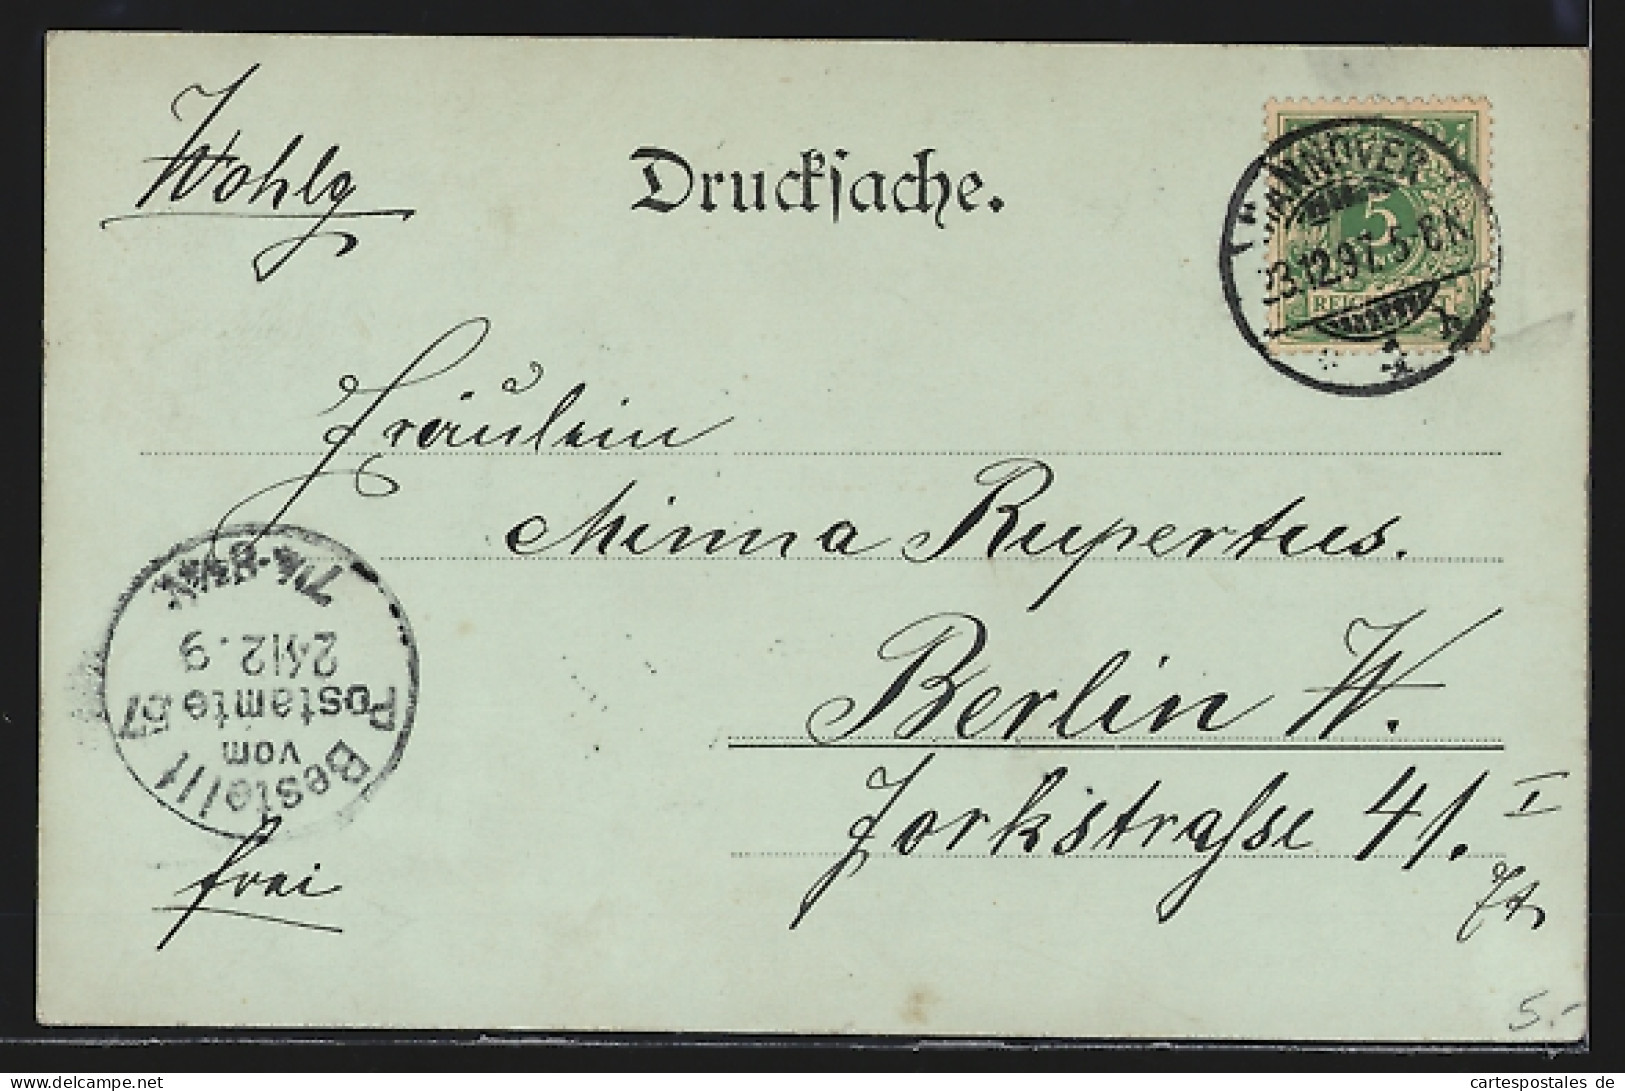 Wohlg
Drucksache.
HANNOVER
23.12.97. 5-6 N.
* 1 *
5
REICHSPOST
Fräulein
Minna Rupertus.
Berlin W.
Jorkstrasse 41. I
Bestellt
vom
Postamte 57
24 12. 9
7¼-8½N.
frei
5.-
cartespostales.de
www.delcampe.net